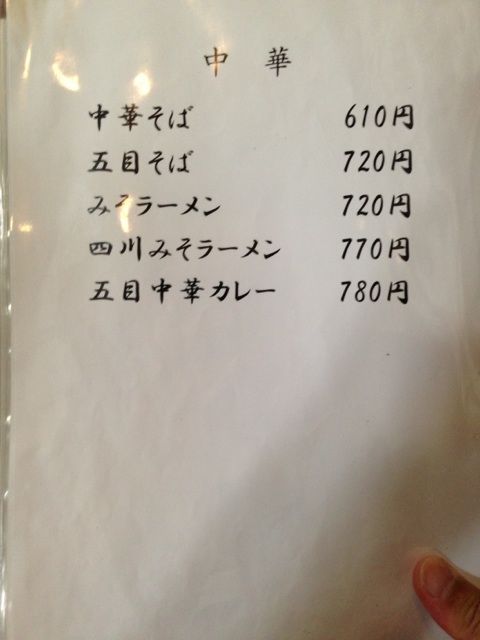 中華
中華そば 610円
五目そば 720円
みそラーメン 720円
四川みそラーメン 770円
五目中華カレー 780円